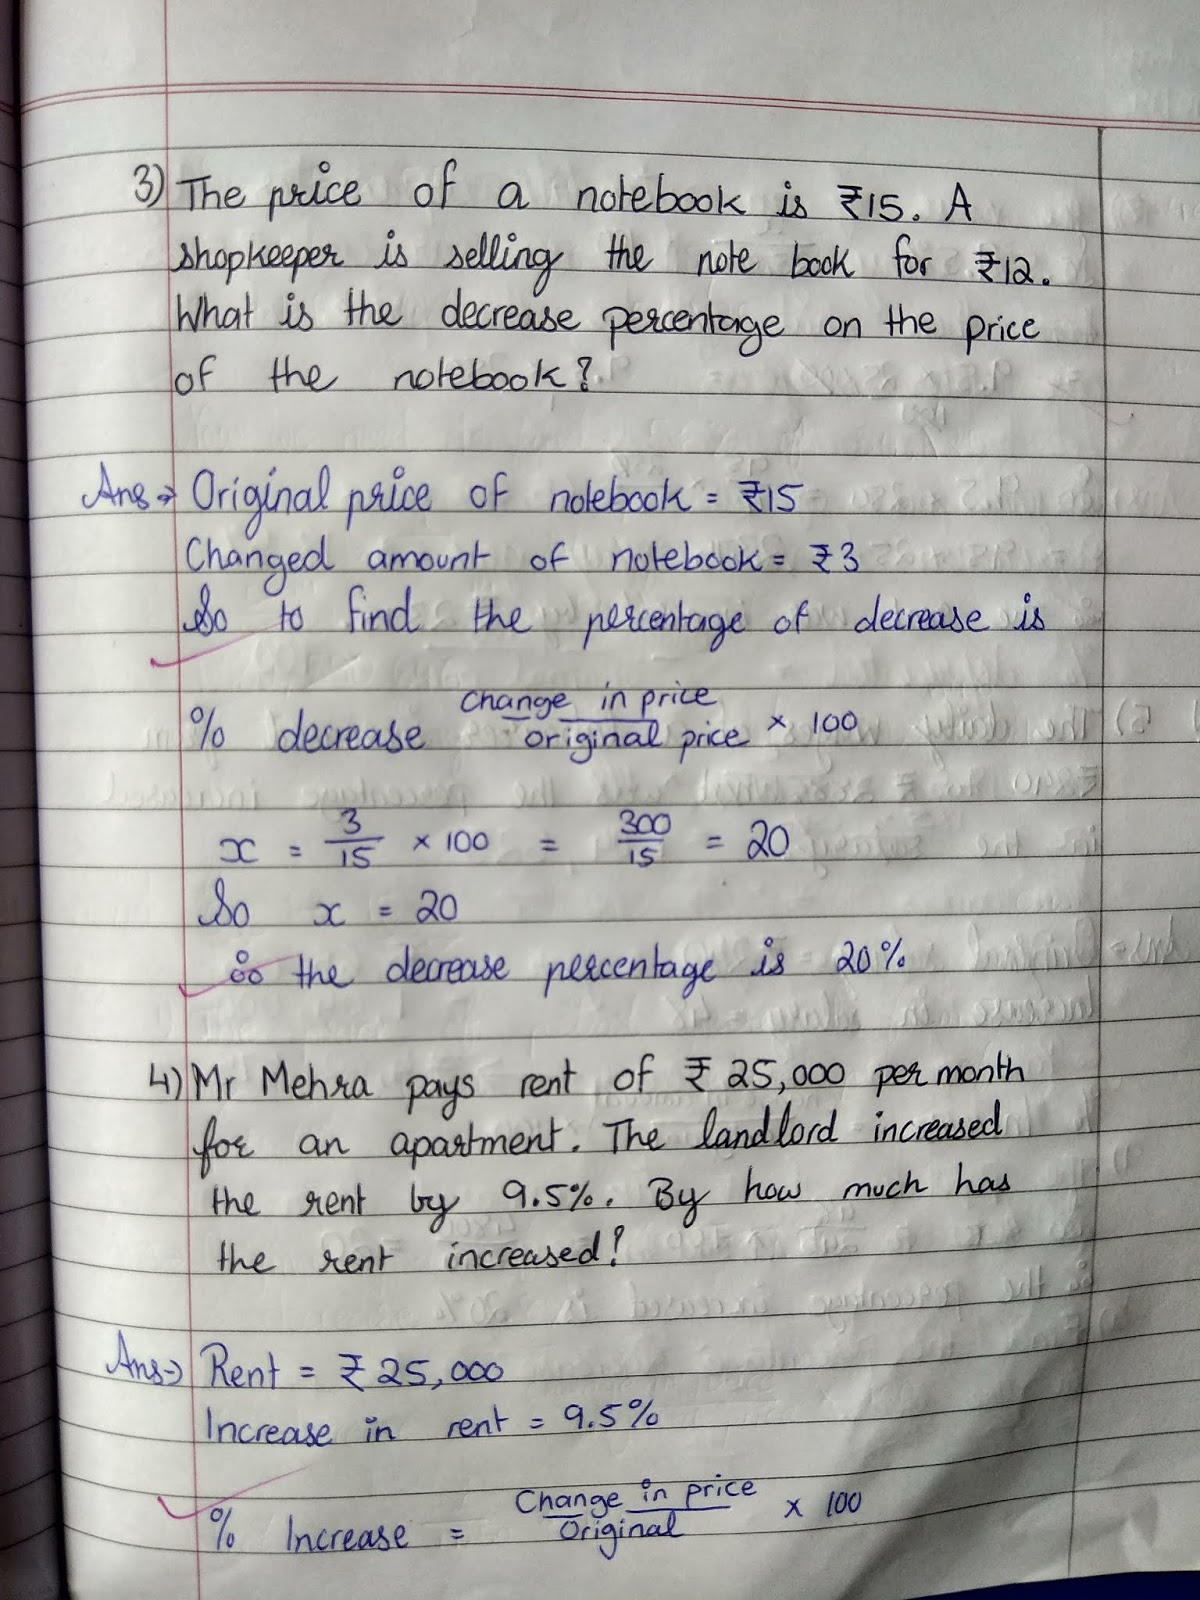 3) The price of a notebook is ₹15. A
shopkeeper is selling the note book for ₹12.
What is the decrease percentage on the price
of the notebook?
Ans → Original price of notebook = ₹15
Changed amount of notebook = ₹3
So to find the percentage of decrease is
% decrease change in price / original price × 100
x = 3/15 × 100 = 300/15 = 20
So x = 20
∴ the decrease percentage is 20%
4) Mr Mehra pays rent of ₹ 25,000 per month
for an apartment. The landlord increased
the rent by 9.5%. By how much has
the rent increased?
Ans → Rent = ₹ 25,000
Increase in rent = 9.5%
% Increase = Change in price / Original × 100